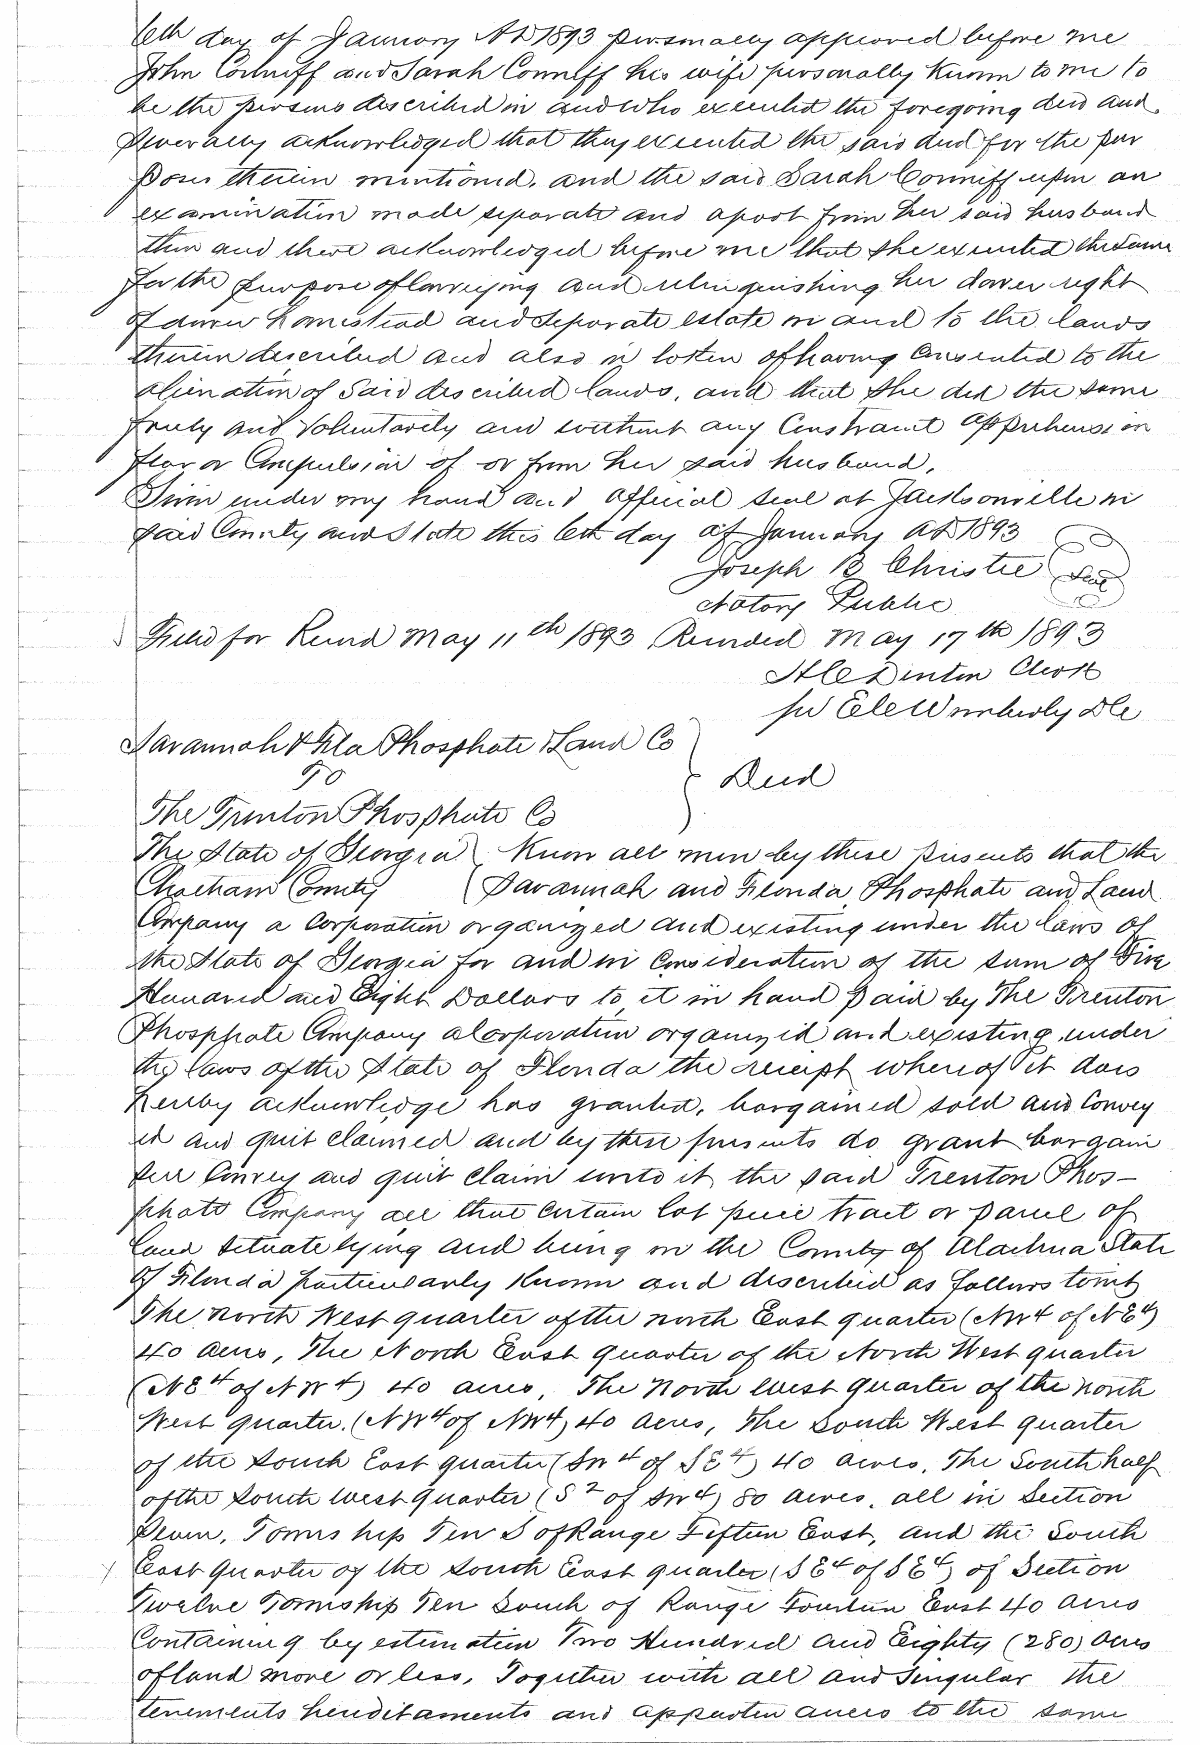 6th day of January AD 1893 personally appeared before me
John Conniff and Sarah Conniff his wife personally known to me to
be the persons described in and who executed the foregoing deed and
severally acknowledged that they executed the said deed for the pur
poses therein mentioned. and the said Sarah Conniff upon an
examination made separate and apart from her said husband
then and there acknowledged before me that she executed the same
for the purpose of conveying and relinquishing her dower right
of dower homestead and separate estate in and to the lands
therein described and also in token of having consented to the
alienation of said described lands, and that she did the same
freely and voluntarily and without any Constraint apprehension
fear or Compulsion of or from her said husband.
Given under my hand and official seal at Jacksonville in
said County and State this 6th day of January AD 1893
Joseph B Christie Seal
Notary Public
Filed for Record May 11th 1893 Recorded May 17th 1893
H C Denton Clerk
per E C Wimberly DC
Savannah & Fla Phosphate & Land Co
To } Deed
The Trenton Phosphate Co
The State of Georgia } Know all men by these presents that the
Chatham County } Savannah and Florida Phosphate and Land
Company a Corporation organized and existing under the laws of
the State of Georgia for and in Consideration of the sum of Five
Hundred and Eight Dollars to it in hand paid by The Trenton
Phosphate Company a Corporation organized and existing under
the laws of the State of Florida the receipt whereof it does
hereby acknowledge has granted, bargained sold and Convey
ed and quit claimed and by these presents do grant bargain
sell Convey and quit claim unto it the said Trenton Phos-
phate Company all that certain lot piece tract or parcel of
land situate lying and being in the County of Alachua State
of Florida particularly known and described as follows towit
The North West quarter of the north East quarter (NW4 of NE4)
40 acres, The North East Quarter of the North West quarter
(NE4 of NW4) 40 acres, The North West Quarter of the north
West quarter. (NW4 of NW4) 40 acres, The South West quarter
of the South East quarter (SW4 of SE4) 40 acres. The South half
of the South West quarter (S2 of SW4) 80 acres, all in Section
Seven, Township Ten S of Range Fifteen East, and the South
East Quarter of the South East quarter (SE4 of SE4) of Section
Twelve Township Ten South of Range Fourteen East 40 acres
Containing by estimation Two Hundred and Eighty (280) acres
of land more or less, Together with all and Singular the
tenements hereditaments and appurtenances to the same